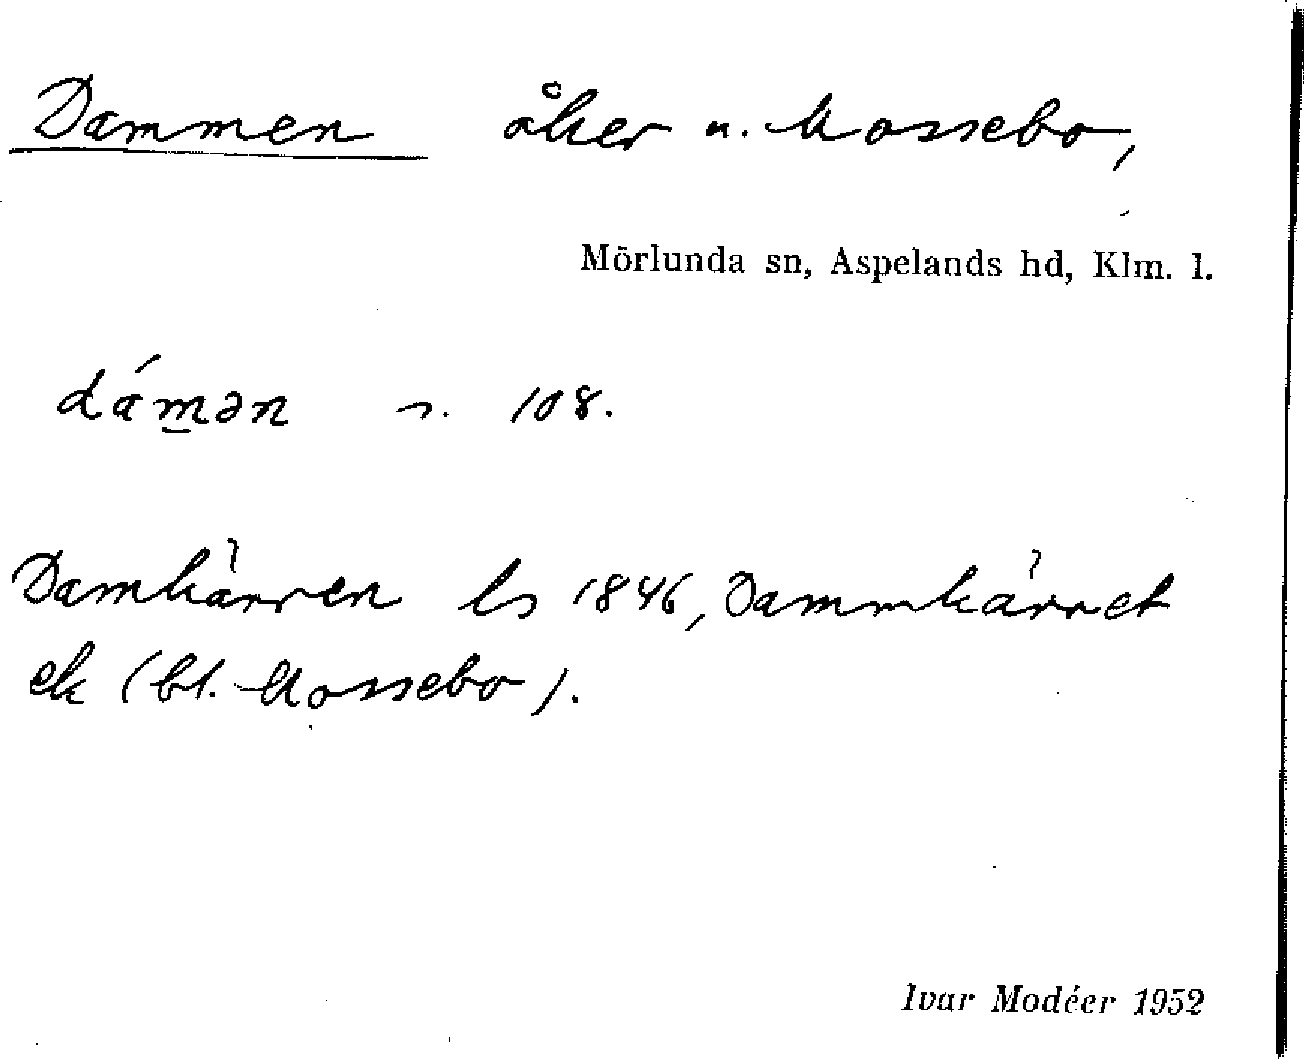 Dammen åker u. Mossebo,
Mörlunda sn, Aspelands hd, Klm. l.
dámən s. 108.
Damkärren ls 1846, Dammkärret
ek (bl. Mossebo).
Ivar Modéer 1952